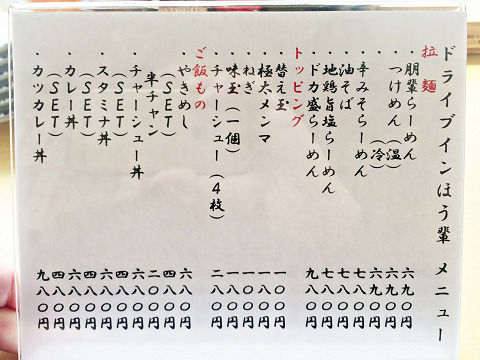 ドライブインほう輩 メニュー
拉麺
・朋輩らーめん 六九〇円
・つけめん(温) 六九〇円
(冷) 六九〇円
・辛みそらーめん 七八〇円
・油そば 七八〇円
・地鶏旨塩らーめん 七八〇円
・ドカ盛らーめん 九八〇円
トッピング
・替え玉 一〇〇円
・極太メンマ 一八〇円
・ねぎ 一〇〇円
・味玉(一個) 一八〇円
・チャーシュー(4枚) 二八〇円
ご飯もの
・やきめし 六八〇円
(SET) 四八〇円
半チャン 二〇〇円
・チャーシュー丼 六八〇円
(SET) 四八〇円
・スタミナ丼 六八〇円
(SET) 四八〇円
・カレー丼 六八〇円
(SET) 四八〇円
・カツカレー丼 九八〇円